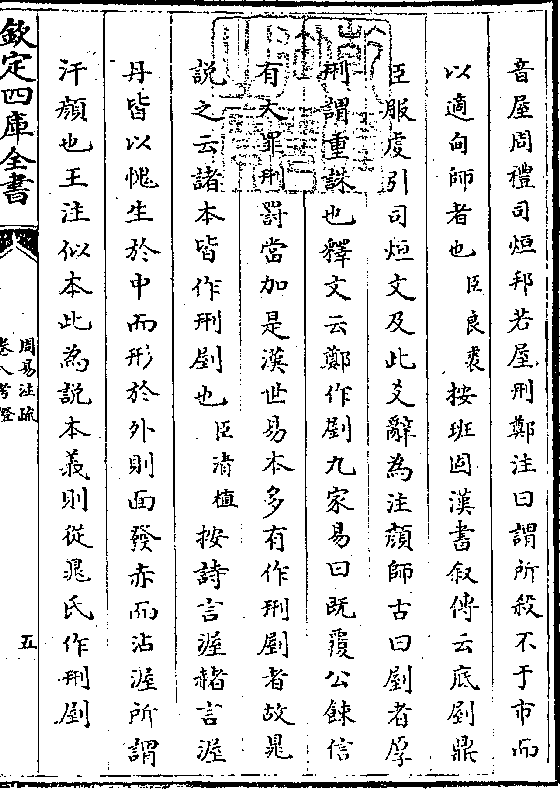 音屋周禮司烜邦若屋刑鄭注曰謂所殺不于市而
以適甸師者也臣良裘按班固漢書叙傳云底剭鼎
臣服虔引司烜文及此爻辭為注顔師古曰剭者厚
刑謂重誅也釋文云鄭作剭九家易曰既覆公餗信
有大罪刑罰當加是漢世易本多有作刑剭者故晁
説之云諸本皆作刑剭也臣浩植按詩言渥赭言渥
丹皆以愧生於中而形於外則面發赤而沾渥所謂
汗顔也王注似本此為説本義則從晁氏作刑剭
欽定四庫全書
周易注疏
卷八考證
五